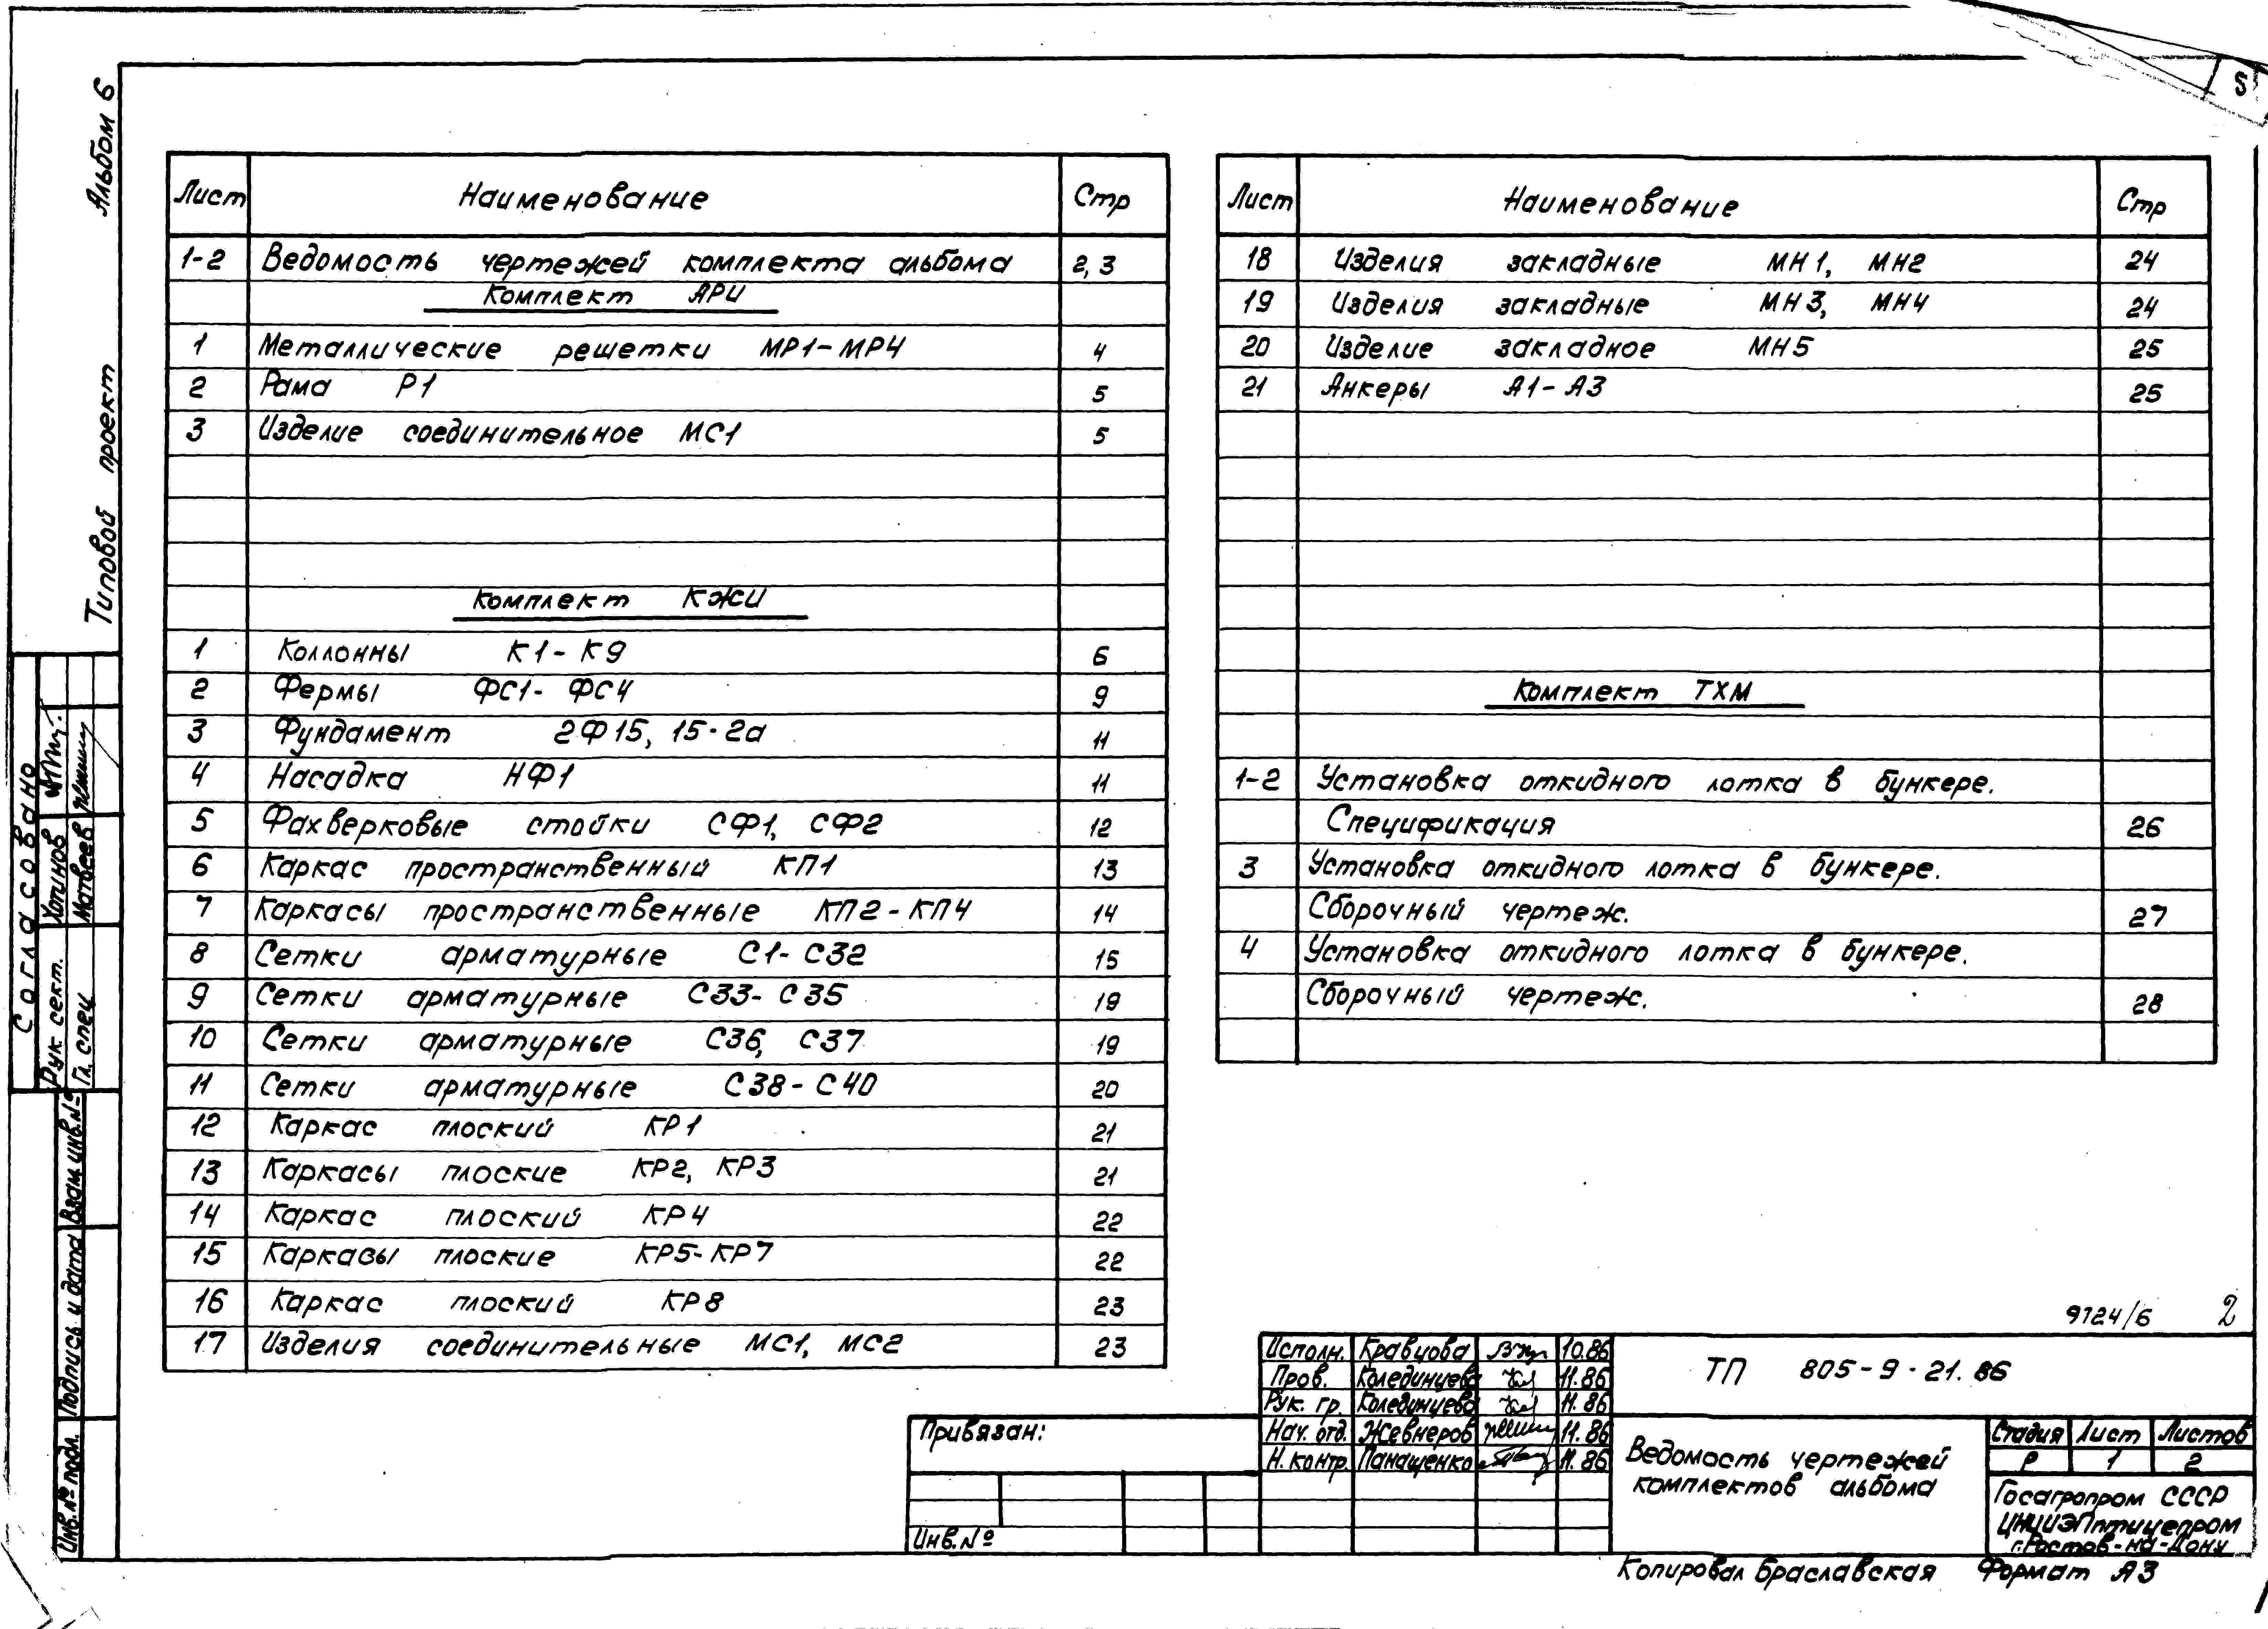 Альбом 6
Типовой проект
Лист Наименование Стр
1-2 Ведомость чертежей комплекта альбома 2, 3
Комплект АРИ
1 Металлические решетки МР1-МР4 4
2 Рама Р1 5
3 Изделие соединительное МС1 5
Комплект КЖИ
1 Коллонны К1-К9 6
2 Фермы ФС1-ФС4 9
3 Фундамент 2Ф15, 15-2а 11
4 Насадка НФ1 11
5 Фахверковые стойки СФ1, СФ2 12
6 Каркас пространственный КП1 13
7 Каркасы пространственные КП2-КП4 14
8 Сетки арматурные С1-С32 15
9 Сетки арматурные С33-С35 19
10 Сетки арматурные С36, С37 19
11 Сетки арматурные С38-С40 20
12 Каркас плоский КР1 21
13 Каркасы плоские КР2, КР3 21
14 Каркас плоский КР4 22
15 Каркасы плоские КР5-КР7 22
16 Каркас плоский КР8 23
17 Изделия соединительные МС1, МС2 23
Лист Наименование Стр
18 Изделия закладные МН1, МН2 24
19 Изделия закладные МН3, МН4 24
20 Изделие закладное МН5 25
21 Анкеры А1-А3 25
Комплект ТХМ
1-2 Установка откидного лотка в бункере.
Спецификация 26
3 Установка откидного лотка в бункере.
Сборочный чертеж. 27
4 Установка откидного лотка в бункере.
Сборочный чертеж. 28
Согласовано
Рук. сект. Хотинов
Гл. спец Матвеев
Взам. инв.№
Подпись и дата
Инв.№ подл.
9724/6 2
Исполн. Кравцова 10.86
Пров. Колединцева 11.86
Рук. гр. Колединцева 11.86
Нач. отд. Жевнеров 11.86
Н. контр. Панащенко 11.86
Привязан:
Инв.№
ТП 805-9-21.86
Ведомость чертежей
комплектов альбома
Стадия Лист Листов
Р 1 2
Госагропром СССР
ЦНИИЭПптицепром
г.Ростов-на-Дону
Копировал Браславская Формат А3